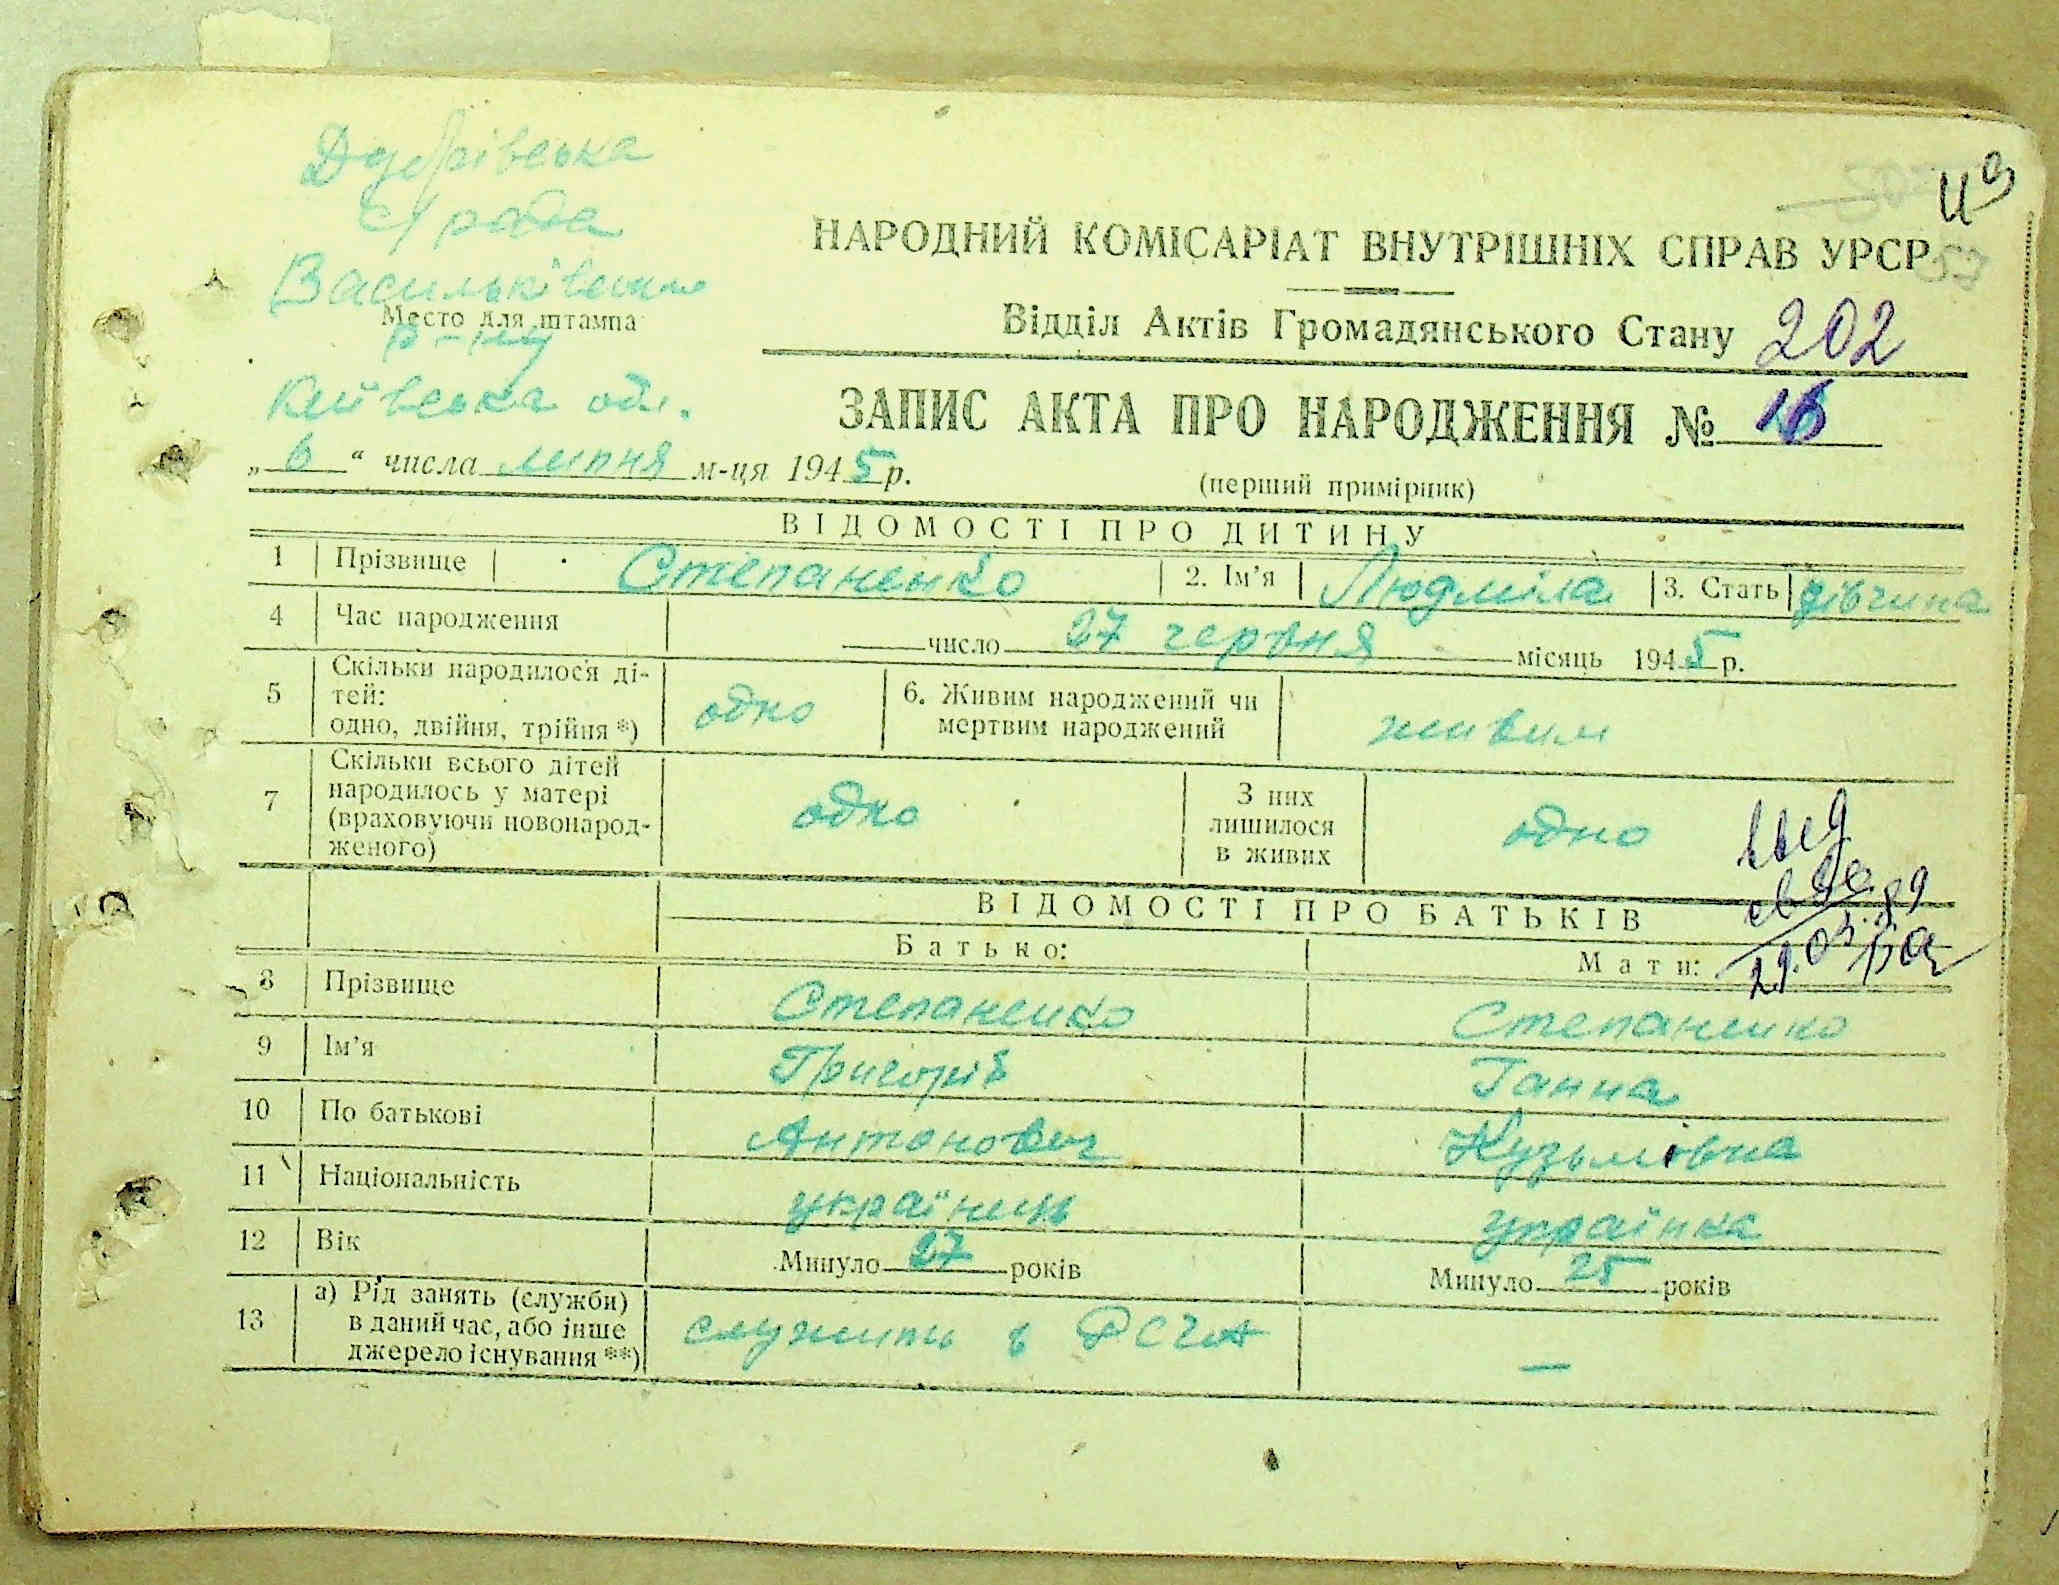 Дзербівська
с/рада
Васильківськ
Место для штампа
р-ну
Київська обл.
„ 6 “ числа липня м-ця 1945 р.
из
НАРОДНИЙ КОМІСАРІАТ ВНУТРІШНІХ СПРАВ УРСР
57
Відділ Актів Громадянського Стану
202
ЗАПИС АКТА ПРО НАРОДЖЕННЯ № 16
(перший примірник)
ВІДОМОСТІ ПРО ДИТИНУ
1 Прізвище Степаненко 2. Ім’я Людміла 3. Стать дівчина
4 Час народження число 27 червня місяць 1945 р.
5 Скільки народилося ді-
тей:
одно, двійня, трійня *) одно
6. Живим народжений чи
мертвим народжений живим
7 Скільки всього дітей
народилось у матері
(враховуючи новонарод-
женого) одно
З них
лишилося
в живих одно
ВІДОМОСТІ ПРО БАТЬКІВ
Батько: Мати:
8 Прізвище Степаненко Степаненко
9 Ім’я Григорій Ганна
10 По батькові Антонович Кузьмівна
11 Національність українець українка
12 Вік Минуло 27 років Минуло 25 років
13 а) Рід занять (служби)
в даний час, або інше
джерело існування **) служить в РСЧА —